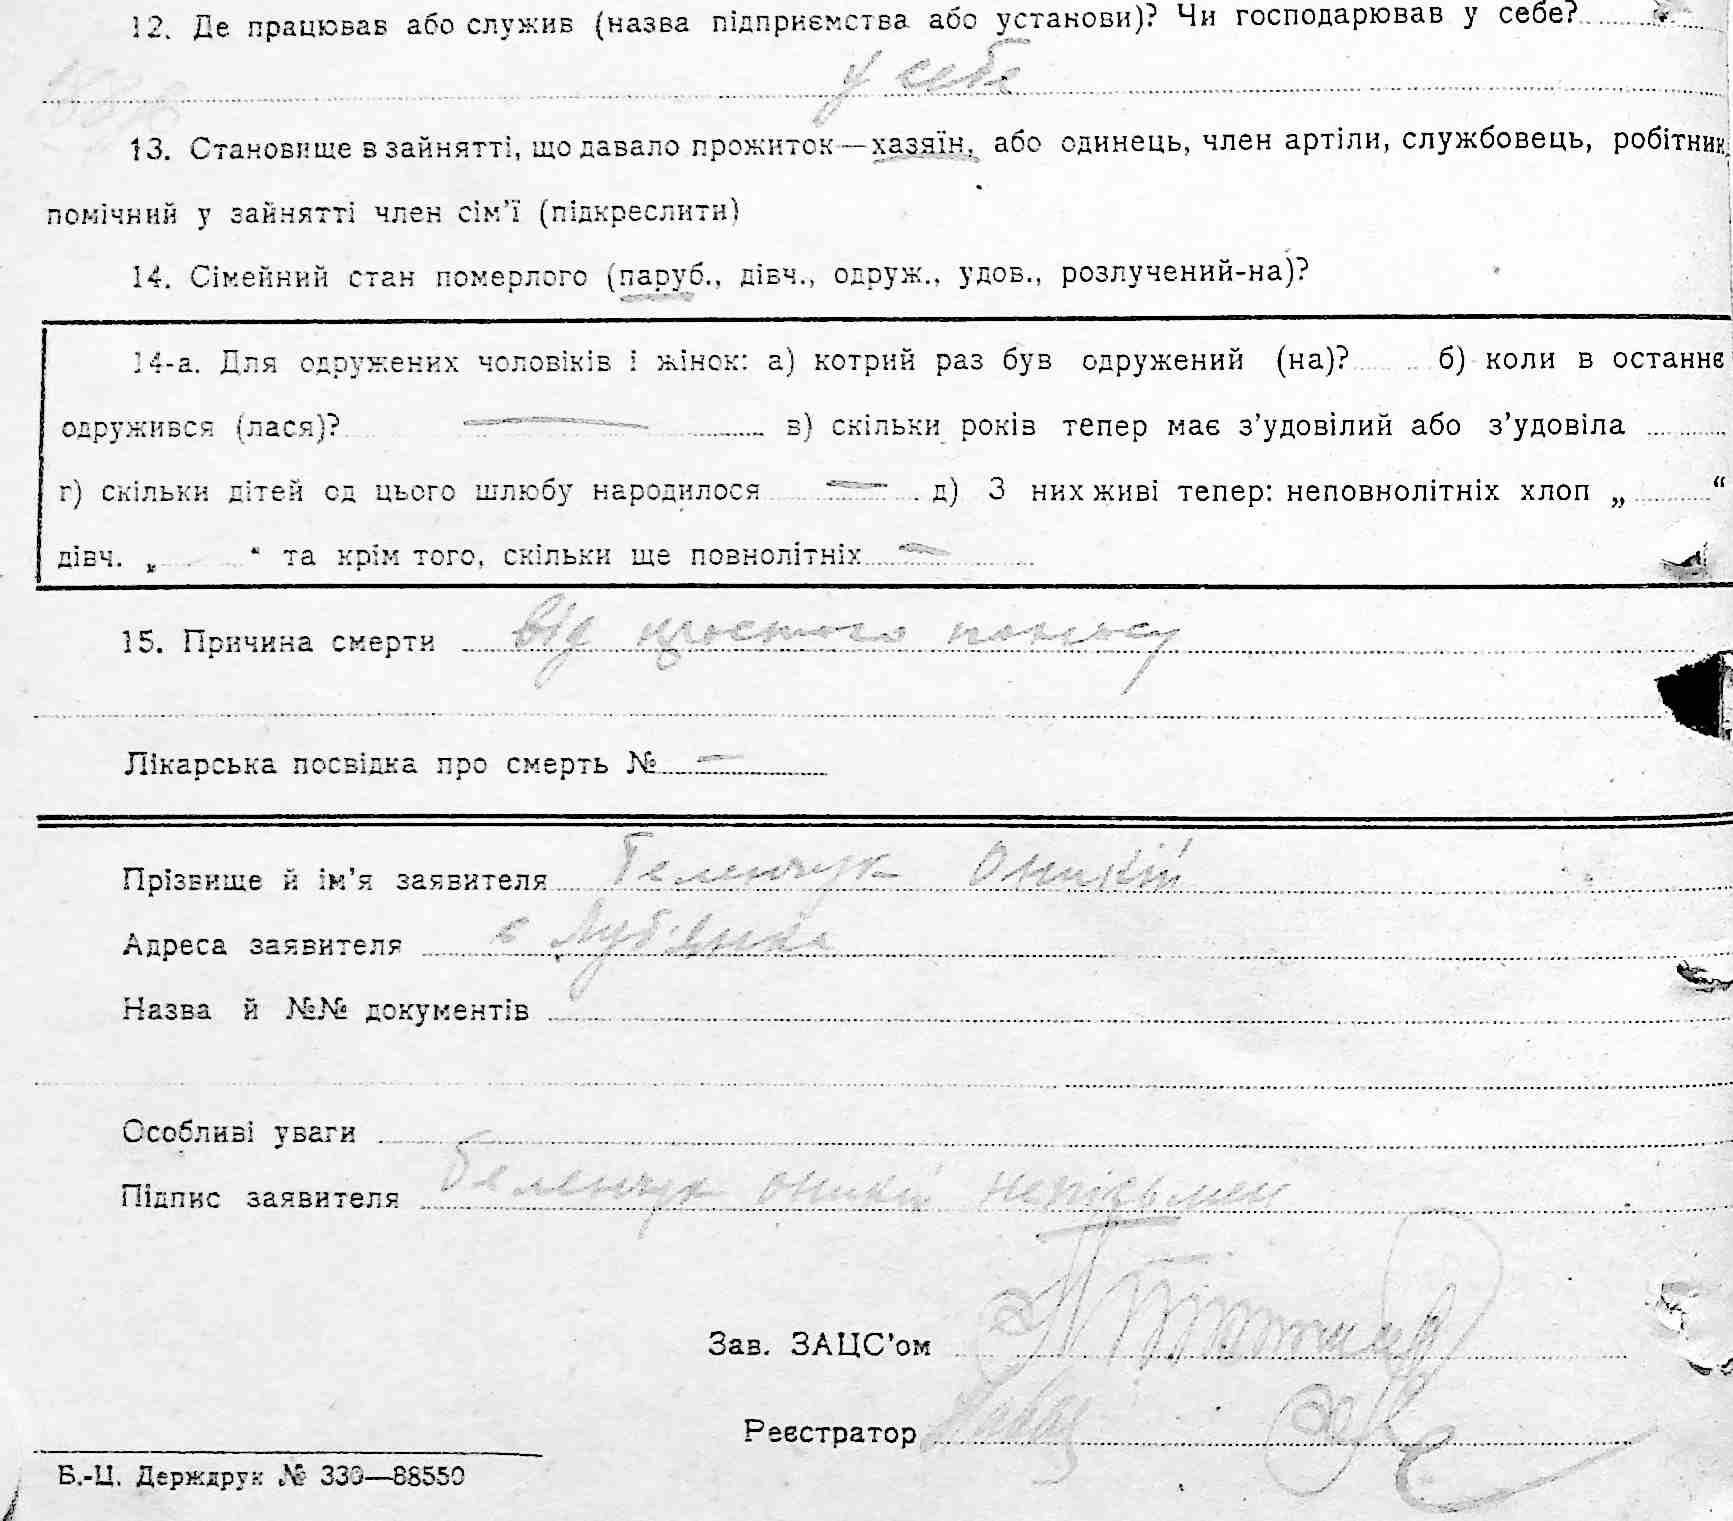 12. Де працював або служив (назва підприємства або установи)? Чи господарював у себе?
у себе
13. Становище в зайнятті, що давало прожиток—хазяїн, або одинець, член артіли, службовець, робітник,
помічний у зайнятті член сім’ї (підкреслити)
14. Сімейний стан померлого (паруб., дівч., одруж., удов., розлучений-на)?
14-а. Для одружених чоловіків і жінок: а) котрий раз був одружений (на)? б) коли в останнє
одружився (лася)? — в) скільки років тепер має з’удовілий або з’удовіла
г) скільки дітей од цього шлюбу народилося — д) З них живі тепер: неповнолітніх хлоп „ “
дівч. „ “ та крім того, скільки ще повнолітніх —
15. Причина смерти від простого поносу
Лікарська посвідка про смерть № —
Прізвище й ім’я заявителя Беленчук Оникій
Адреса заявителя с Луб'янка
Назва й №№ документів
Особливі уваги
Підпис заявителя Беленчук оникій непісьмен
Зав. ЗАЦС’ом
Реєстратор
Б.-Ц. Держдрук № 330—88550